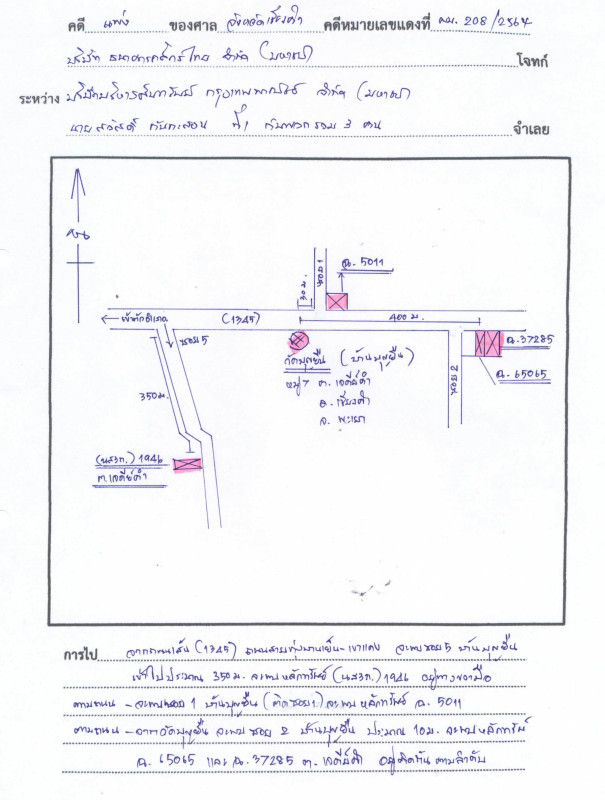 คดี แพ่ง ของศาล จังหวัดเชียงคำ คดีหมายเลขแดงที่ ผบ. 208/2564
บริษัท ธนาคารกสิกรไทย จำกัด (มหาชน) โจทก์
ระหว่าง บริษัทบริหารสินทรัพย์ กรุงเทพพาณิชย์ จำกัด (มหาชน)
นายสวัสดิ์ ที่ 1 กับพวกรวม 3 คน จำเลย
น.
ฉ. 5011
30 ม.
ซอย 1
(1345)
400 ม.
ซอย 5
350 ม.
วัดบุญยืน (บ้านบุญยืน)
หมู่ 7 ต. เจดีย์คำ
อ. เชียงคำ
จ. พะเยา
ซอย 2
ฉ. 37285
ฉ. 65065
(นส3ก.) 1946
ต. เจดีย์คำ
การไป จากถนนเส้น (1345) ถนนสาย จะพบซอย 5 บ้านบุญยืน
เข้าไปประมาณ 350 ม. จะพบหลักทรัพย์ (นส3ก.) 1946 อยู่ทางขวามือ
ตามถนน - จะพบซอย 1 บ้านบุญยืน (ติดซอย 1) จะพบหลักทรัพย์ ฉ. 5011
ตามถนน - จากวัดบุญยืน จะพบ ซอย 2 บ้านบุญยืน ประมาณ 10ม. จะพบหลักทรัพย์
ฉ. 65065 และ ฉ. 37285 ต. เจดีย์คำ อยู่ติดกัน ตามลำดับ